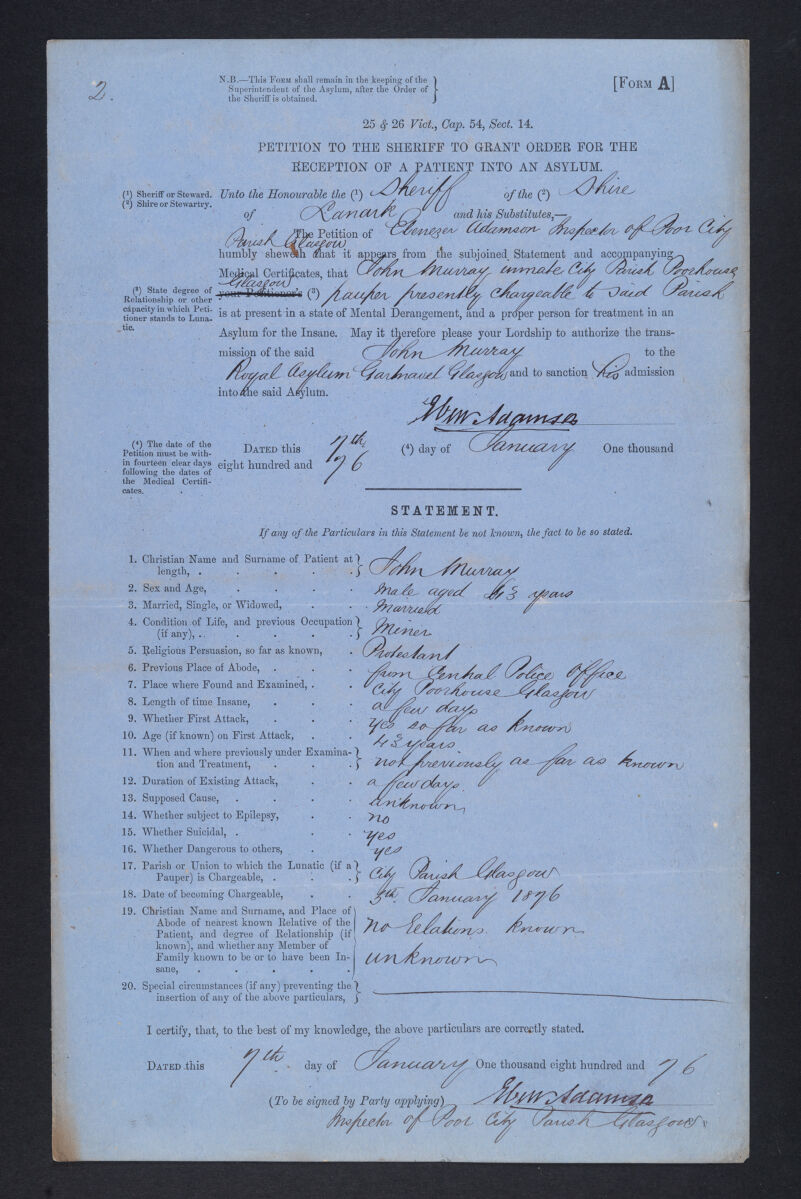 2.
N.B.—This Form shall remain in the keeping of the
Superintendent of the Asylum, after the Order of
the Sheriff is obtained.
[Form A]
25 & 26 Vict., Cap. 54, Sect. 14.
PETITION TO THE SHERIFF TO GRANT ORDER FOR THE
RECEPTION OF A PATIENT INTO AN ASYLUM.
(1) Sheriff or Steward.
(2) Shire or Stewartry.
Unto the Honourable the (1) Sheriff of the (2) Shire
of Lanark and his Substitutes,—
The Petition of Ebenezer Adamson Inspector of Poor City
Parish Glasgow
humbly sheweth that it appears from the subjoined Statement and accompanying
Medical Certificates, that John Murray inmate City Parish Poorhouse
Glasgow
(3) State degree of
Relationship or other
capacity in which Peti-
tioner stands to Luna-
tic.
your Petitioner's (3) pauper presently chargeable to said Parish
is at present in a state of Mental Derangement, and a proper person for treatment in an
Asylum for the Insane. May it therefore please your Lordship to authorize the trans-
mission of the said John Murray to the
Royal Asylum Gartnavel Glasgow and to sanction his admission
into the said Asylum.
Eben Adamson
(4) The date of the
Petition must be with-
in fourteen clear days
following the dates of
the Medical Certifi-
cates.
Dated this 7th (4) day of January One thousand
eight hundred and 76
STATEMENT.
If any of the Particulars in this Statement be not known, the fact to be so stated.
1. Christian Name and Surname of Patient at
length, . . . . . John Murray
2. Sex and Age, . . . . Male aged 43 years
3. Married, Single, or Widowed, . . Married
4. Condition of Life, and previous Occupation
(if any), . . . . . Miner
5. Religious Persuasion, so far as known, . Protestant
6. Previous Place of Abode, . . . from Central Police Office
7. Place where Found and Examined, . . City Poorhouse Glasgow
8. Length of time Insane, . . . a few days
9. Whether First Attack, . . . yes so far as known
10. Age (if known) on First Attack, . . 43 years
11. When and where previously under Examina-
tion and Treatment, . . . not previously as far as known
12. Duration of Existing Attack, . . a few days.
13. Supposed Cause, . . . . unknown
14. Whether subject to Epilepsy, . . no
15. Whether Suicidal, . . . yes
16. Whether Dangerous to others, . . yes
17. Parish or Union to which the Lunatic (if a
Pauper) is Chargeable, . . . City Parish Glasgow
18. Date of becoming Chargeable, . . 5th January 1876
19. Christian Name and Surname, and Place of
Abode of nearest known Relative of the
Patient, and degree of Relationship (if
known), and whether any Member of
Family known to be or to have been In-
sane, . . . . .
No Relations known
unknown
20. Special circumstances (if any) preventing the
insertion of any of the above particulars,
I certify, that, to the best of my knowledge, the above particulars are correctly stated.
Dated this 7th day of January One thousand eight hundred and 76
(To be signed by Party applying) Eben Adamson
Inspector of Poor City Parish Glasgow